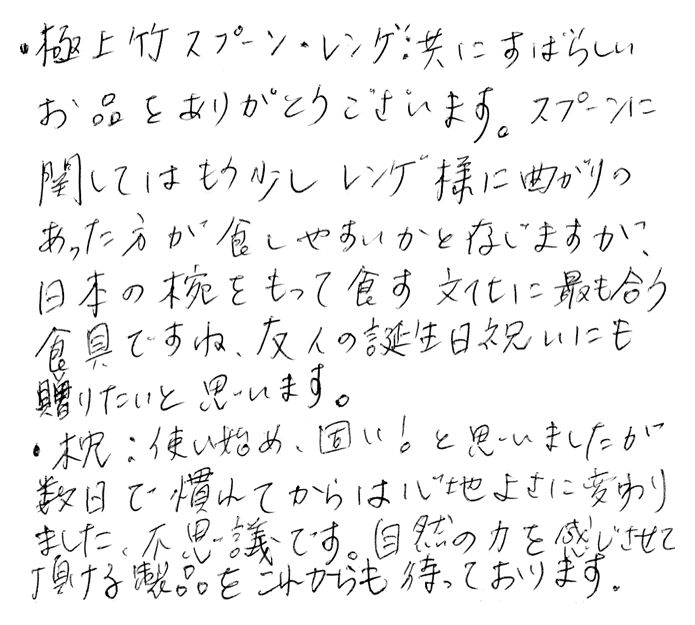 ・極上竹スプーン・レンゲ:共にすばらしい
お品をありがとうございます。スプーンに
関してはもう少しレンゲ様に曲がりの
あった方が食しやすいかと存じますが、
日本の椀をもって食す文化に最も合う
食具ですね、友人の誕生日祝いにも
贈りたいと思います。
・枕:使い始め、固い!と思いましたが
数日で慣れてからは心地よさに変わり
ました、不思議です。自然の力を感じさせて
頂ける製品をこれからも待っております。